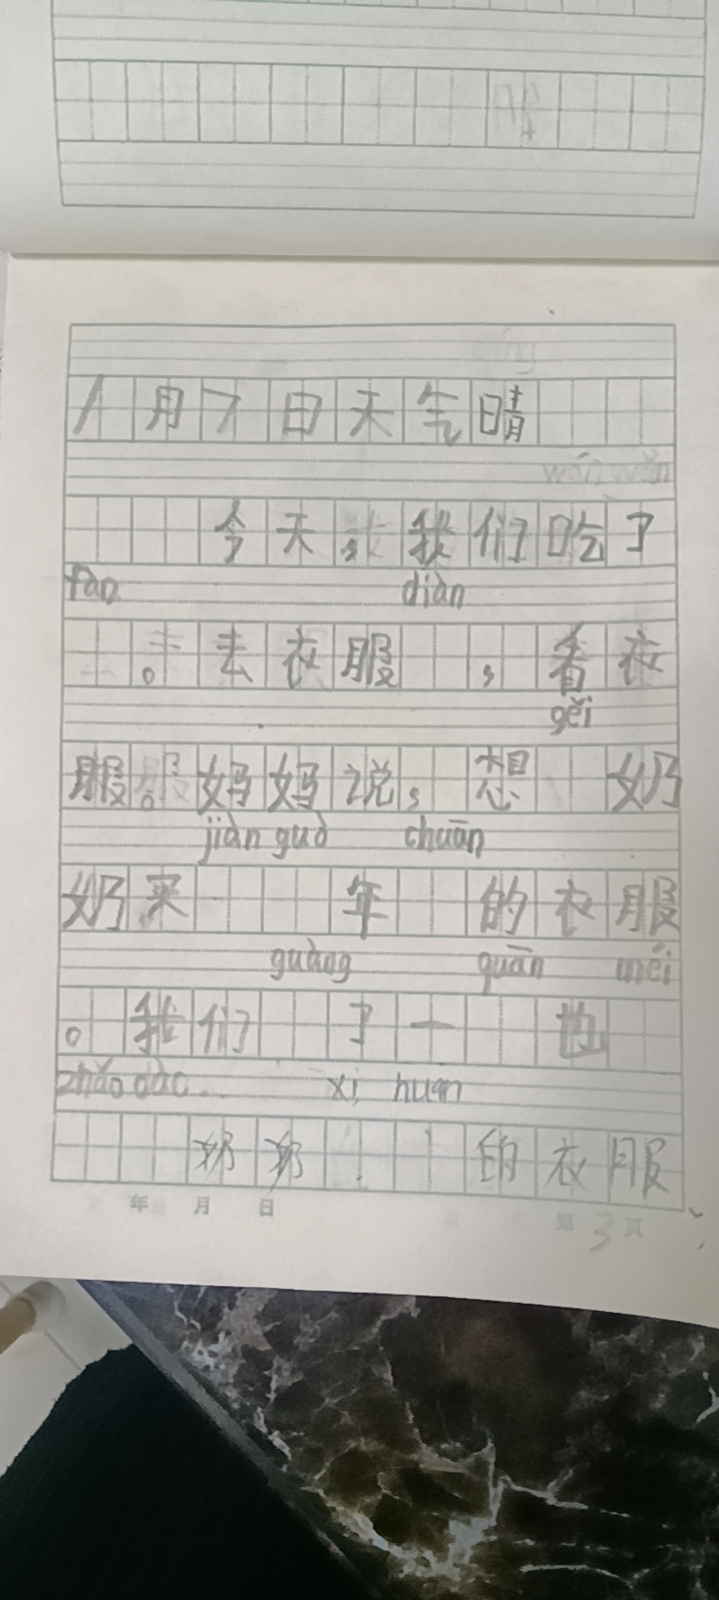 1月7日天气晴
wǎn
今天,我们吃了
fàn diàn
。去衣服,看衣
gěi
服。妈妈说,想奶
jiàn guò chuān
奶买年的衣服
guàng quān méi
。我们了一也
zhǎo dào xǐ huan
奶奶的衣服
年 月 日 第 3 页